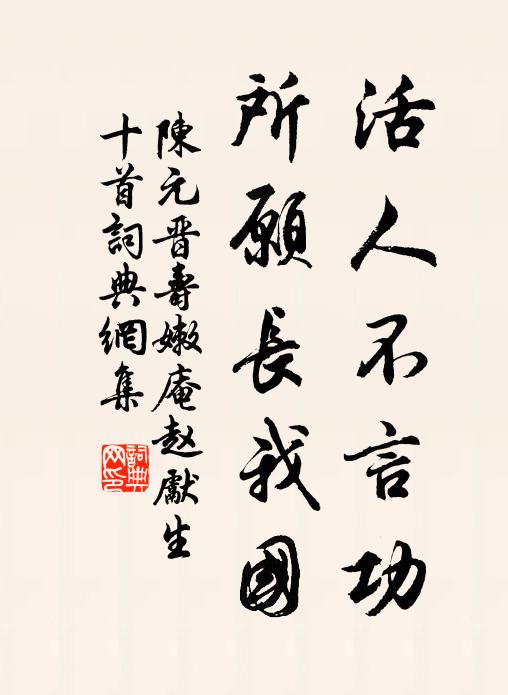 活人不言功
所願長我國
陳元晋壽嫩庵趙獻生
十首詞典網集
詞典网印